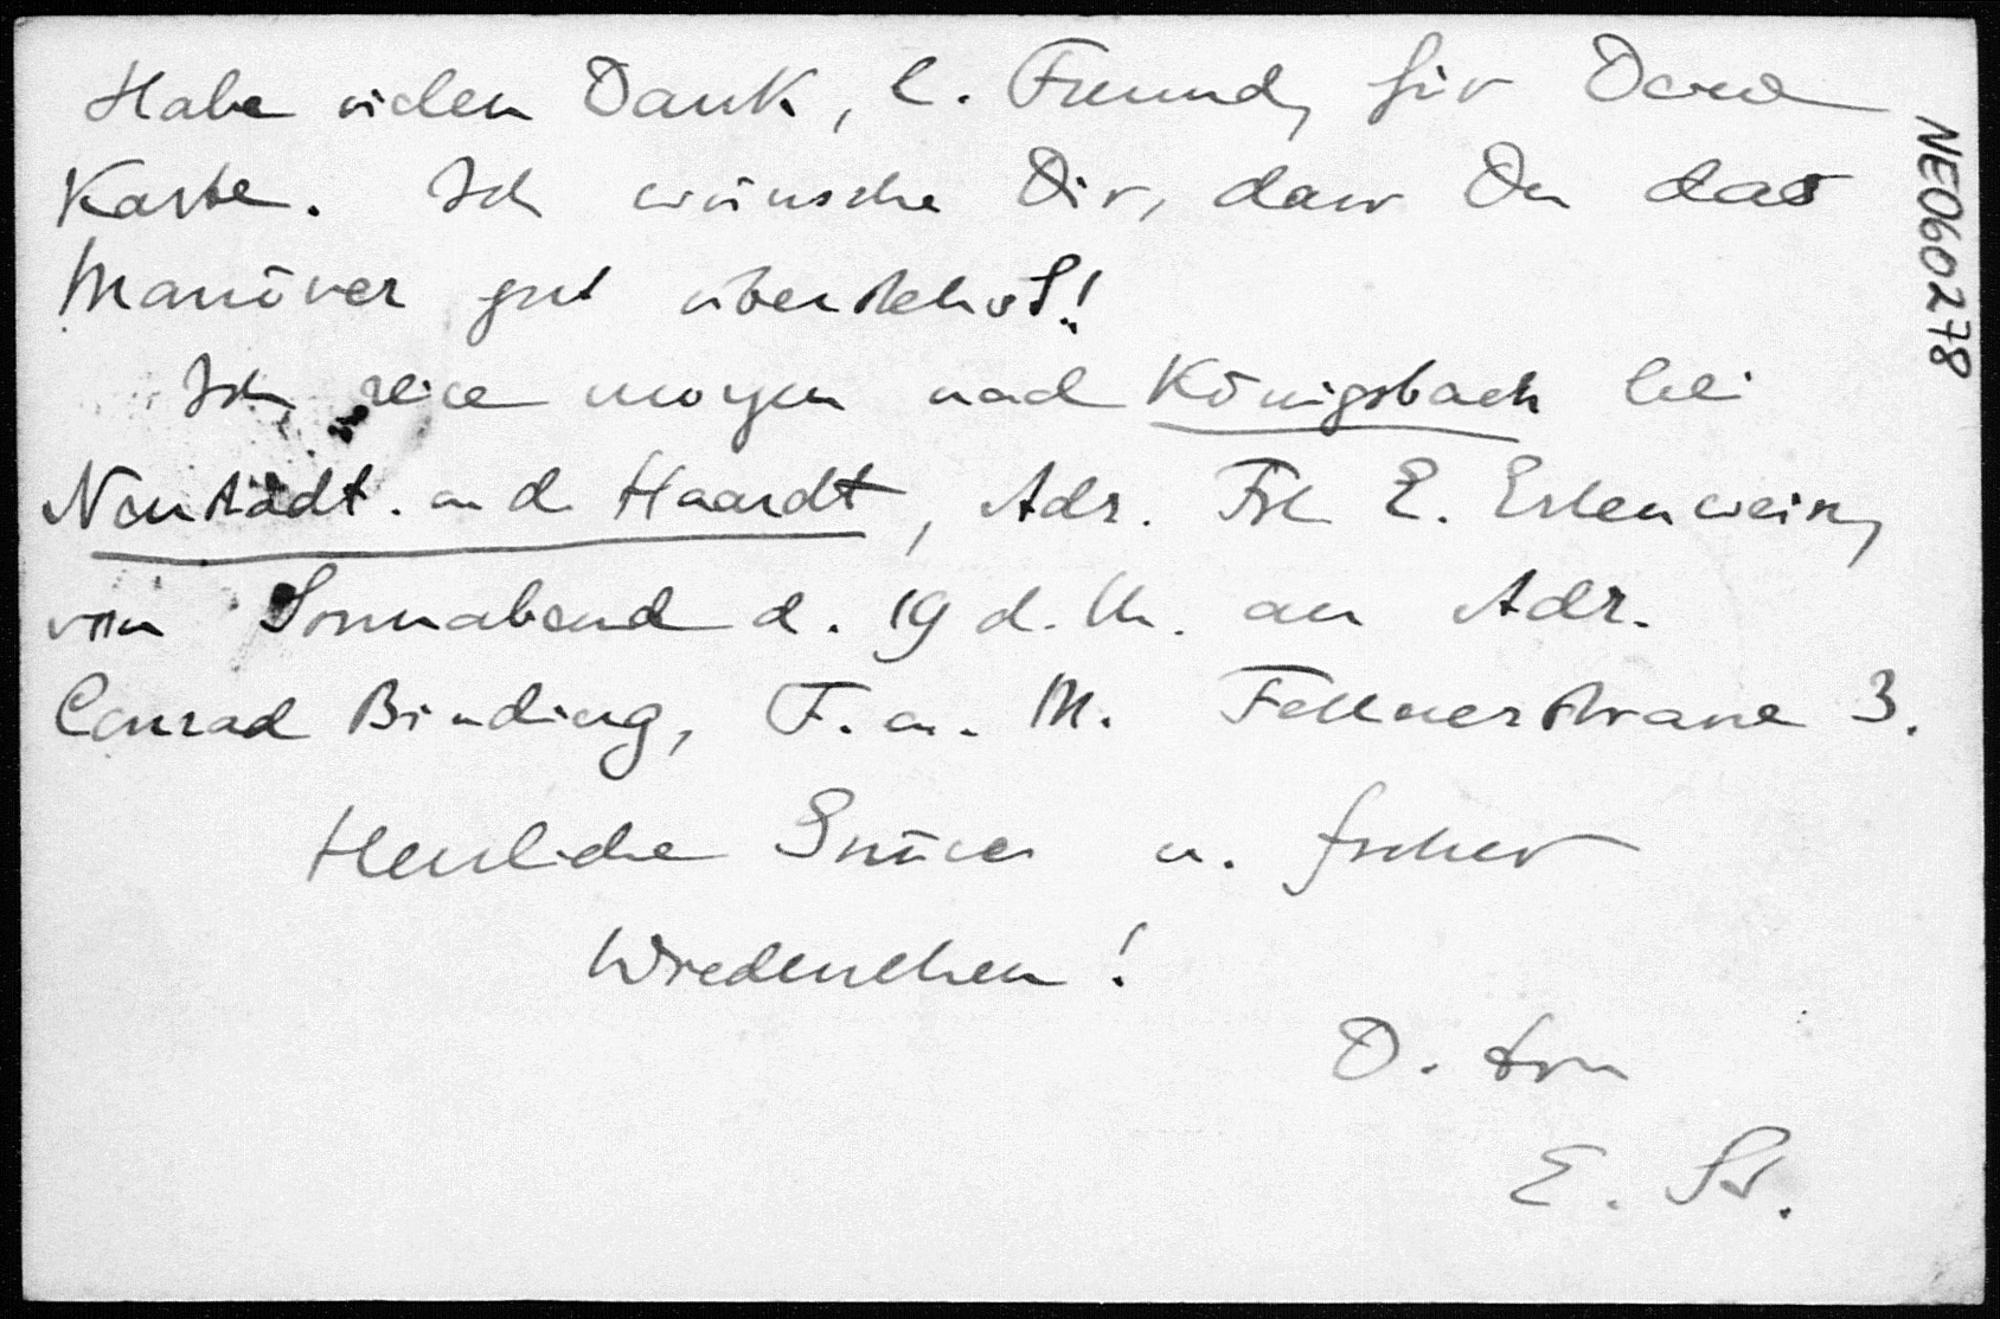 Habe vielen Dank, l. Freund, für Deine
Karte. Ich wünsche Dir, dass Du das
Manöver gut überstehst!
Ich reise morgen nach Königsbach bei
Neustadt a. d. Haardt, Adr. Frl E. Erlenwein,
vom Sonnabend d. 19 d. M. an Adr.
Conrad Binding, F. a. M. Fellnerstrasse 3.
Herzliche Grüsse u. frohes
Wiedersehen!
D.
E. St.
NE060278